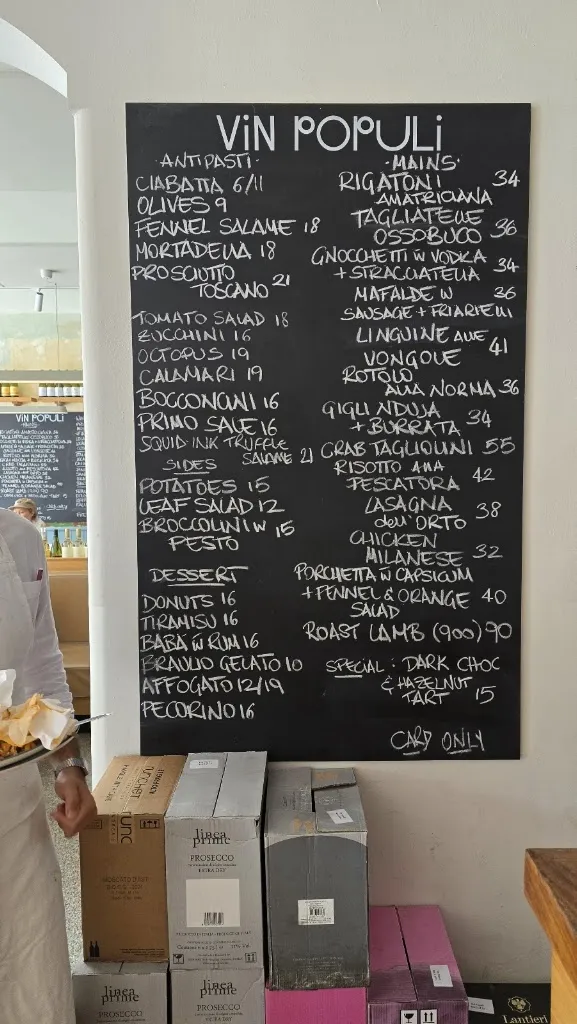 ViN POPULi
·ANTIPASTI·
CIABATTA 6/11
OLIVES 9
FENNEL SALAME 18
MORTADELLA 18
PROSCIUTTO
TOSCANO 21
TOMATO SALAD 18
ZUCCHINI 16
OCTOPUS 19
CALAMARI 19
BOCCONCINI 16
PRIMO SALE 16
SQUID INK TRUFFLE
SALAME 21
SIDES
POTATOES 15
LEAF SALAD 12
BROCCOLINI W 15
PESTO
DESSERT
DONUTS 16
TIRAMISU 16
BABA W RUM 16
BRAULIO GELATO 10
AFFOGATO 12/19
PECORINO 16
·MAINS·
RIGATONI 34
AMATRICIANA
TAGLIATELLE
OSSOBUCO 36
GNOCCHETTI W VODKA
+ STRACCIATELLA 34
MAFALDE W 36
SAUSAGE + FRIARIELLI
LINGUINE ALLE 41
VONGOLE
ROTOLO
ALLA NORMA 36
GIGLI NDUJA 34
+ BURRATA
CRAB TAGLIOLINI 55
RISOTTO ALLA
PESCATORA 42
LASAGNA
dell'ORTO 38
CHICKEN
MILANESE 32
PORCHETTA W CAPSICUM
+ FENNEL & ORANGE 40
SALAD
ROAST LAMB (900) 90
SPECIAL : DARK CHOC
& HAZELNUT
TART 15
CARD ONLY
ViN POPULi
linea
prime
PROSECCO
EXTRA DRY
linea
prime
PROSECCO
linea
prime
PROSECCO
Lantieri